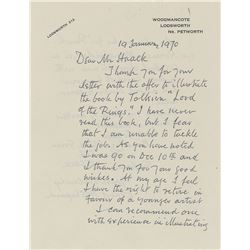 LODSWORTH 212
WOODMANCOTE
LODSWORTH
Nr. PETWORTH
19 January, 1970
Dear Mr Haack
Thank you for your
letter with the offer to illustrate
the book by Tolkien "Lord
of the Rings". I have never
read this book, but I fear
that I am unable to tackle
the job. As you have noted
I was 90 on Dec 10th and
I thank you for your good
wishes. At my age I feel
I have the right to retire in
favour of a younger artist
I can recommend one
with experience in illustrating